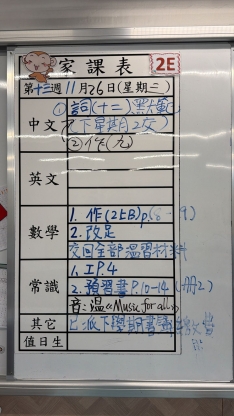 家課表 2E
第十三週 11月26日(星期三)
中文
① 詞(十二)
下星期二交
② 作(九)
英文
數學
1. 作(2上B)p.(8-9)
2. 改足
交回全部溫習材料
常識
1. I.P.4
2. 預習書 P.10-14
音:溫《Music for all》
其它
派下學期書
值日生